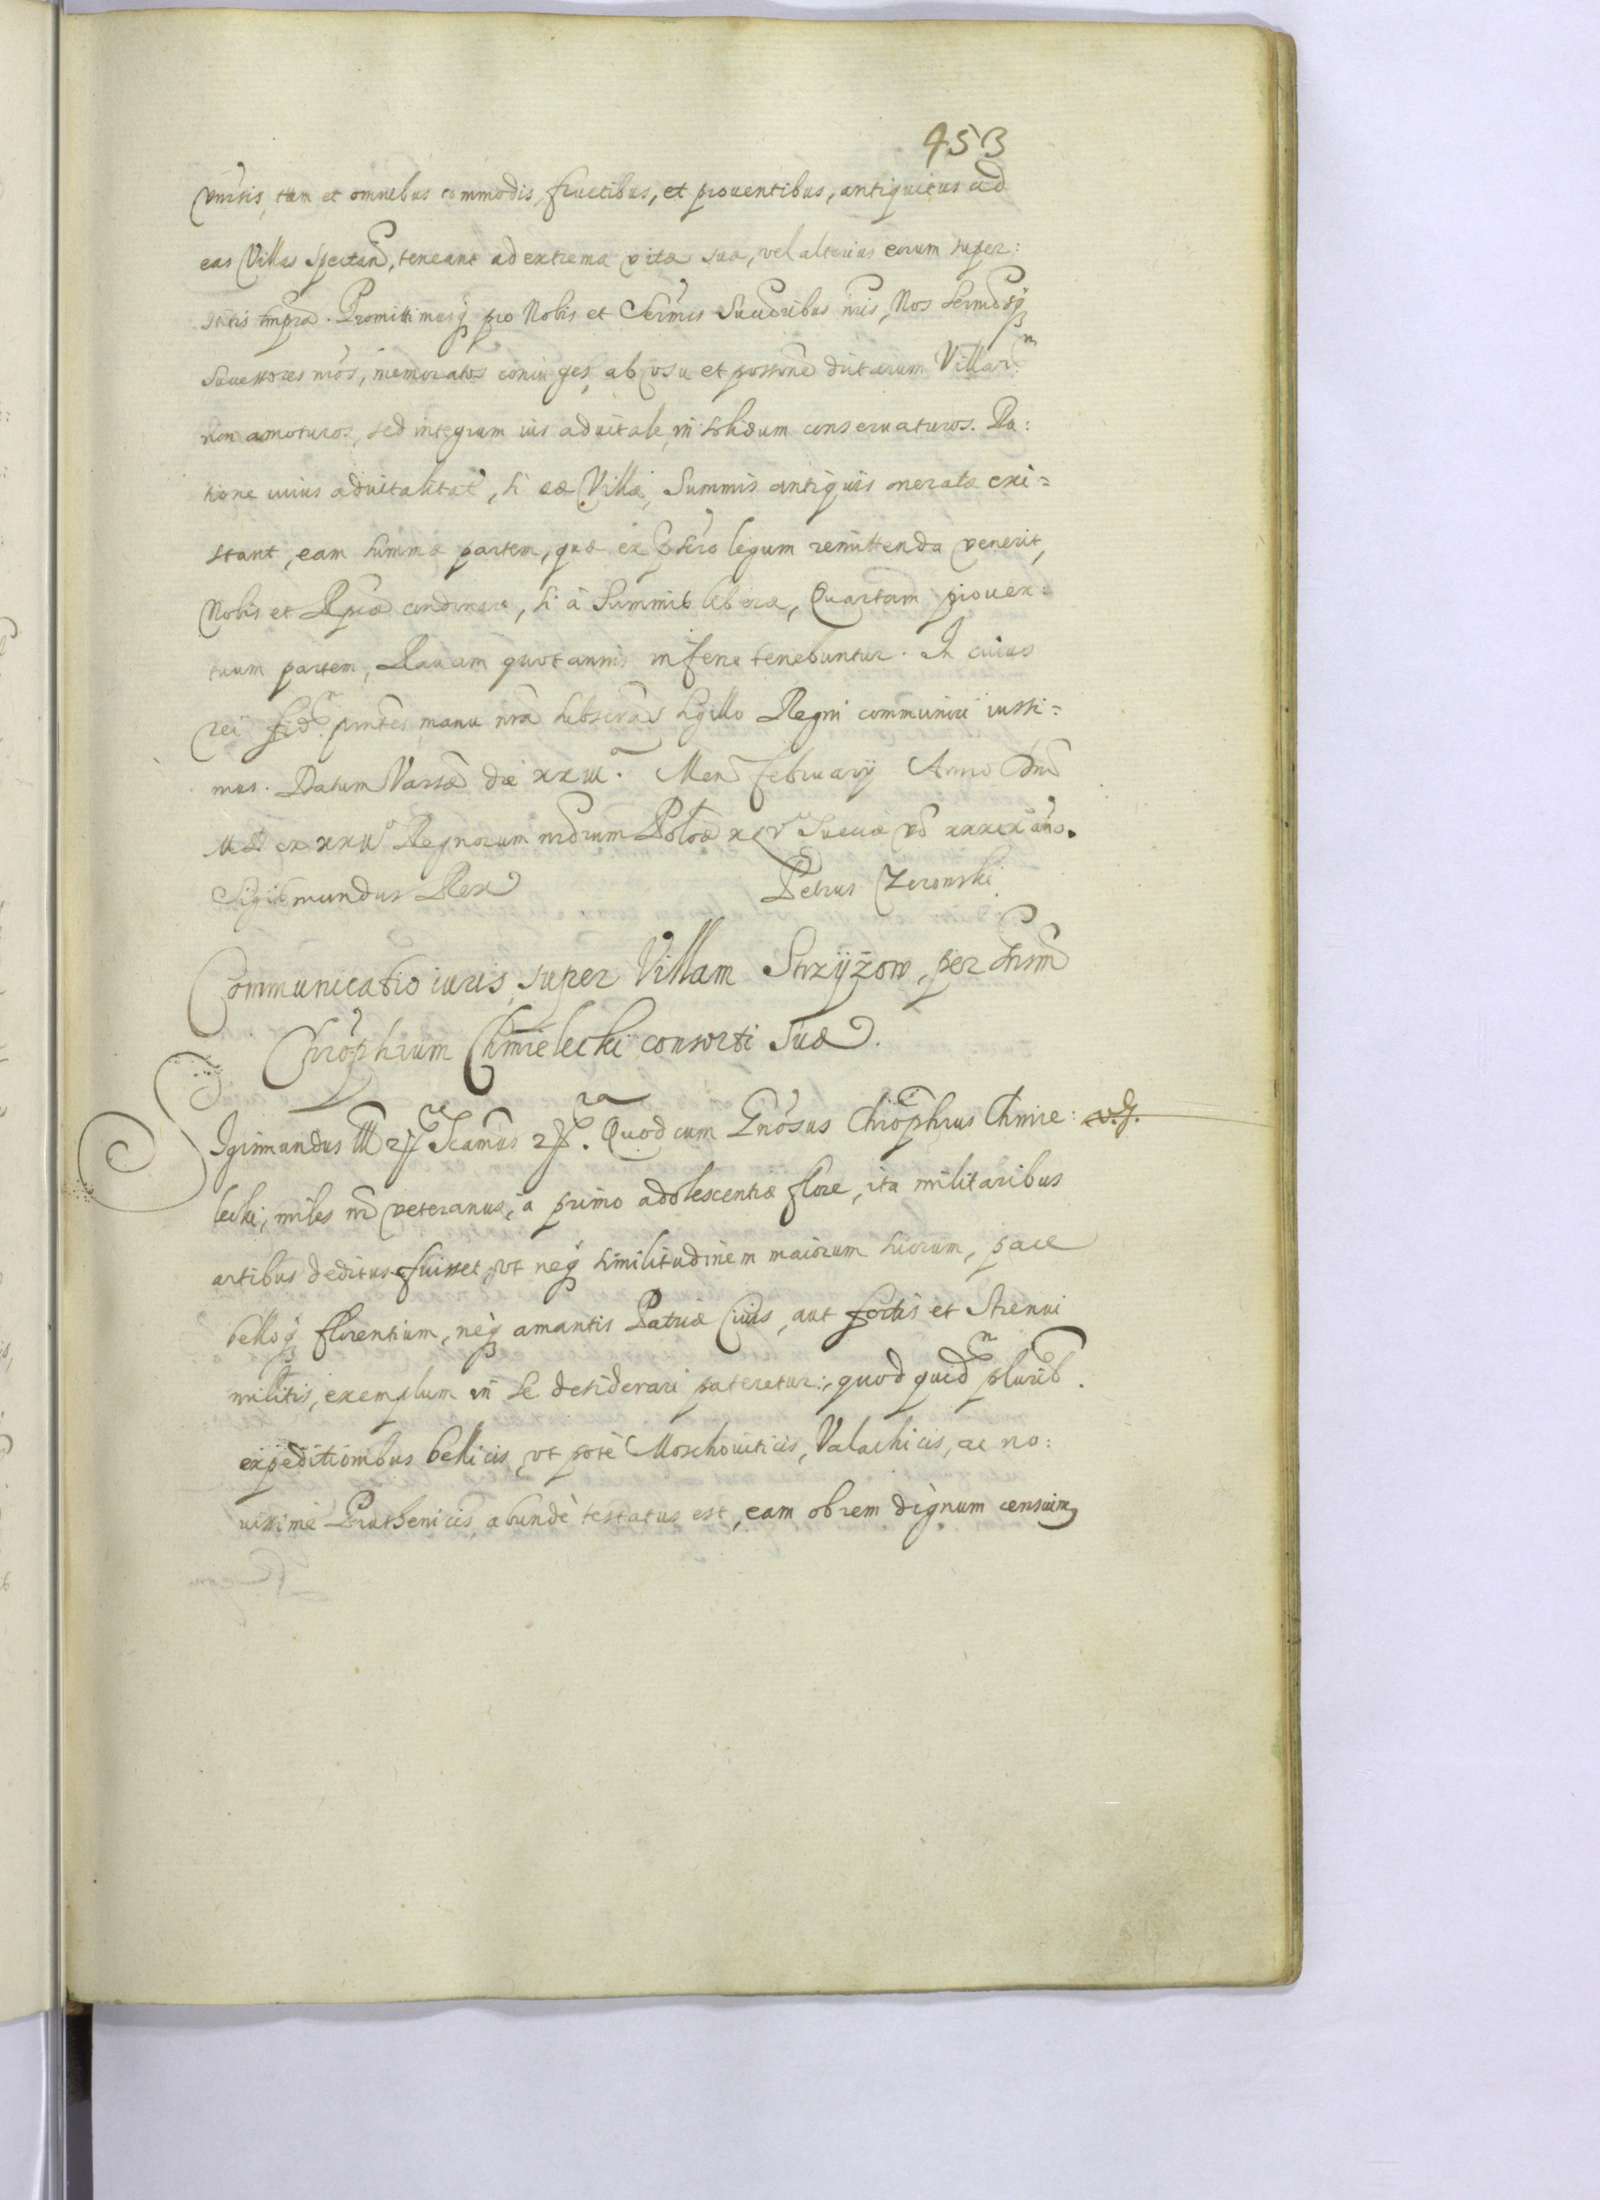 453
vnisis, tum et omnibus commodis, fructibus, et prouentibus, antiquitus ad
eas Villas spectan, teneant ad extrema vitæ suæ, vel alterius eorum super:
stitis tempra. Promittimusq pro Nobis et Sermis Succribus nris, Nos Sermosq
Successores nros, memoratos coniuges, ab vsu et possone dictarum Villarum
non amoturos, sed integrum ius aduitale, in solidum conseruaturos. Ra:
tione cuius aduitalitat, si eæ Villæ, Summis antiquis oneratæ exi=
stant, eam summæ partem, quæ ex legum remittenda venerit,
Nobis et Rpcæ condonare, si à Summis liberæ, Quartam prouen:
tuum partem, Rauam quotannis inferre tenebuntur. In cuius
rei fid. pntes manu nra subscras sigillo Regni communiri iussi=
mus. Datum Varsæ die Men February Anno Dni
Regnorum nrorum Poloæ Sueciæ vo xxxix ano.
Sigismundus Rex Petrus Zeronski
Communicatio iuris super Villam Strzÿżow, per Gnsm
Chrophrum Chmielecki consorti suæ.
Sigismundus III Quod cum Gnosus Chrophrus Chmie:
lecki, miles nr veteranus, à primo adolescentiæ flore, ita militaribus
artibus deditus fuisset, vt neq similitudinem maiorum suorum, pace
belloq florentium, neq amantis Patriæ Ciuis, aut fortis et Strenui
militis, exemplum in se desiderari pateretur: quod quid plurib.
expeditionibus bellicis, vt potè Moschouiticis, Valachicis, ac no:
uissimè Pruthenicis, abundè testatus est, eam obrem dignum censuim